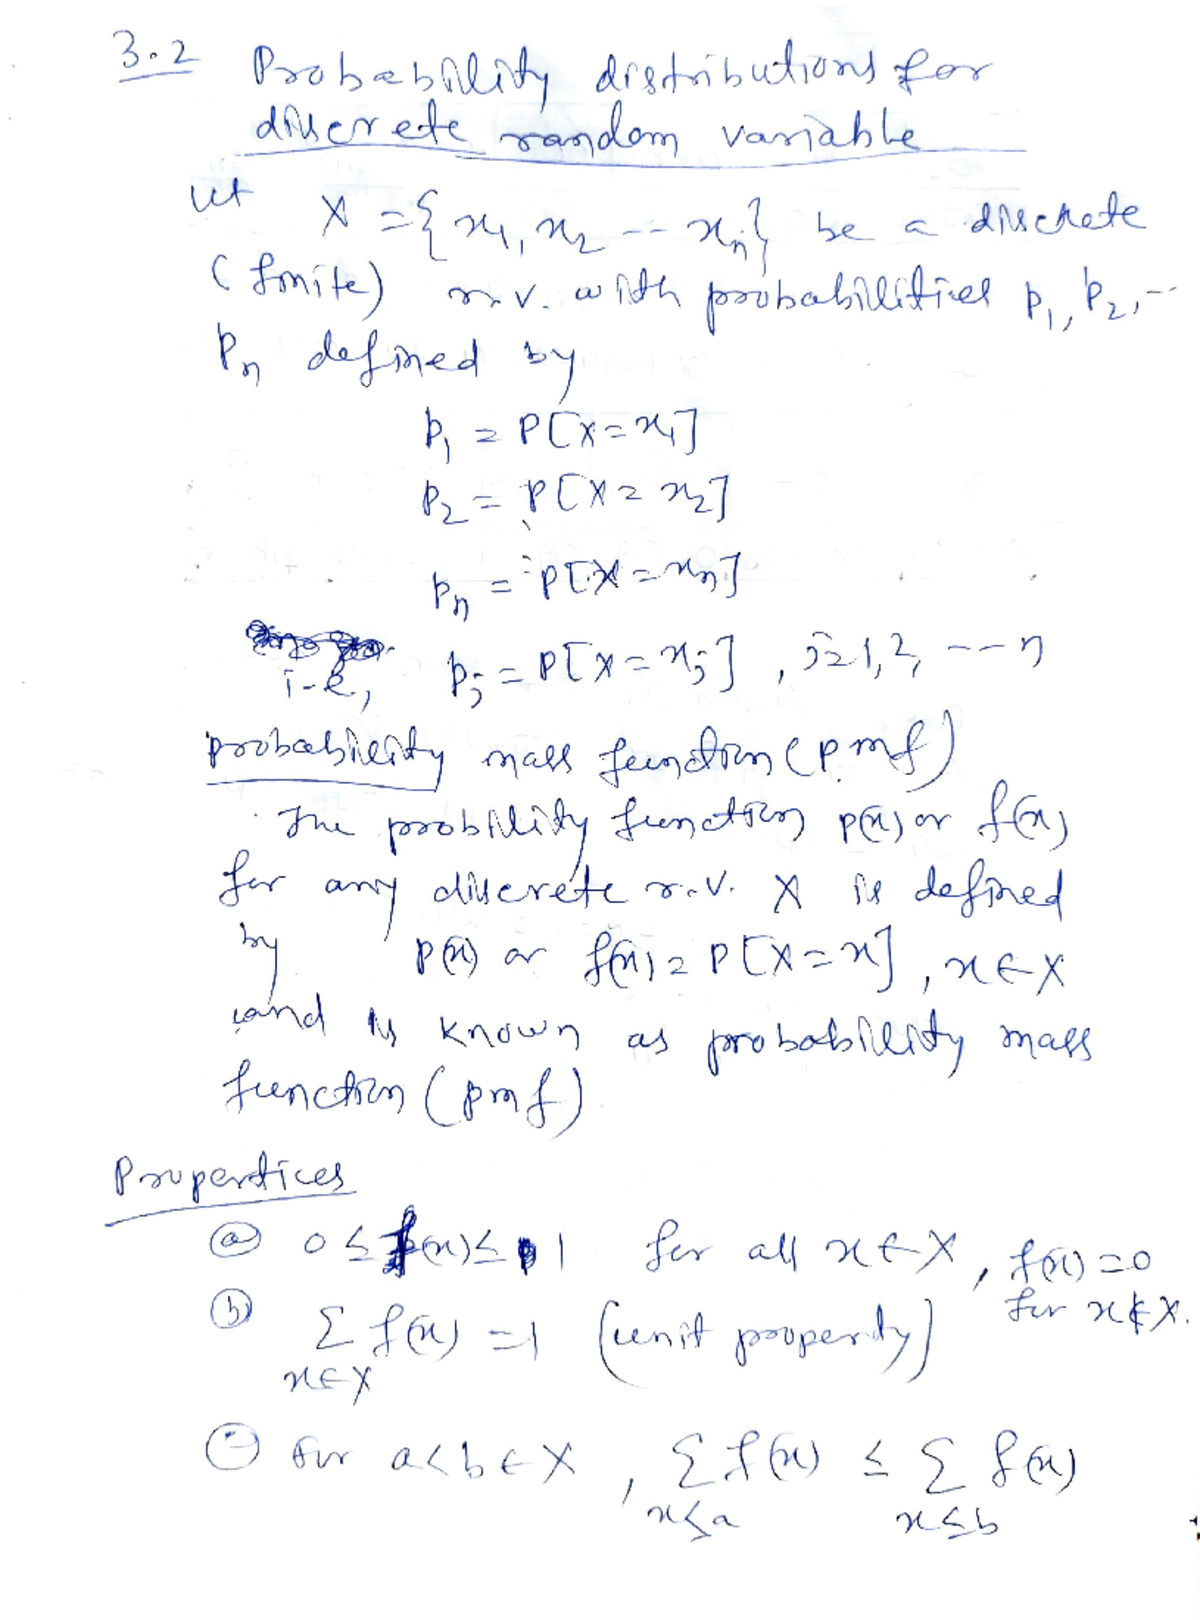 3.2 Probability distributions for
discrete random variable
Let X = {x₁, x₂ --- xₙ} be a discrete
(finite) r.v. with probabilities p₁, p₂, --
pₙ defined by
p₁ = P[X = x₁]
p₂ = P[X = x₂]
pₙ = P[X = xₙ]
i.e, pⱼ = P[X = xⱼ] , j = 1, 2, --- n
probability mass function (pmf)
The probility function p(x) or f(x)
for any discrete r.v. X is defined
by p(x) or f(x) = P[X = x] , x ∈ X
and is known as probability mass
function (pmf)
Properties
(a) 0 ≤ f(x) ≤ 1 for all x ∈ X , f(x) = 0
for x ∉ X.
(b) Σ f(x) = 1 (unit property)
x ∈ X
(c) For a < b ∈ X , Σ f(x) ≤ Σ f(x)
x ≤ a x ≤ b